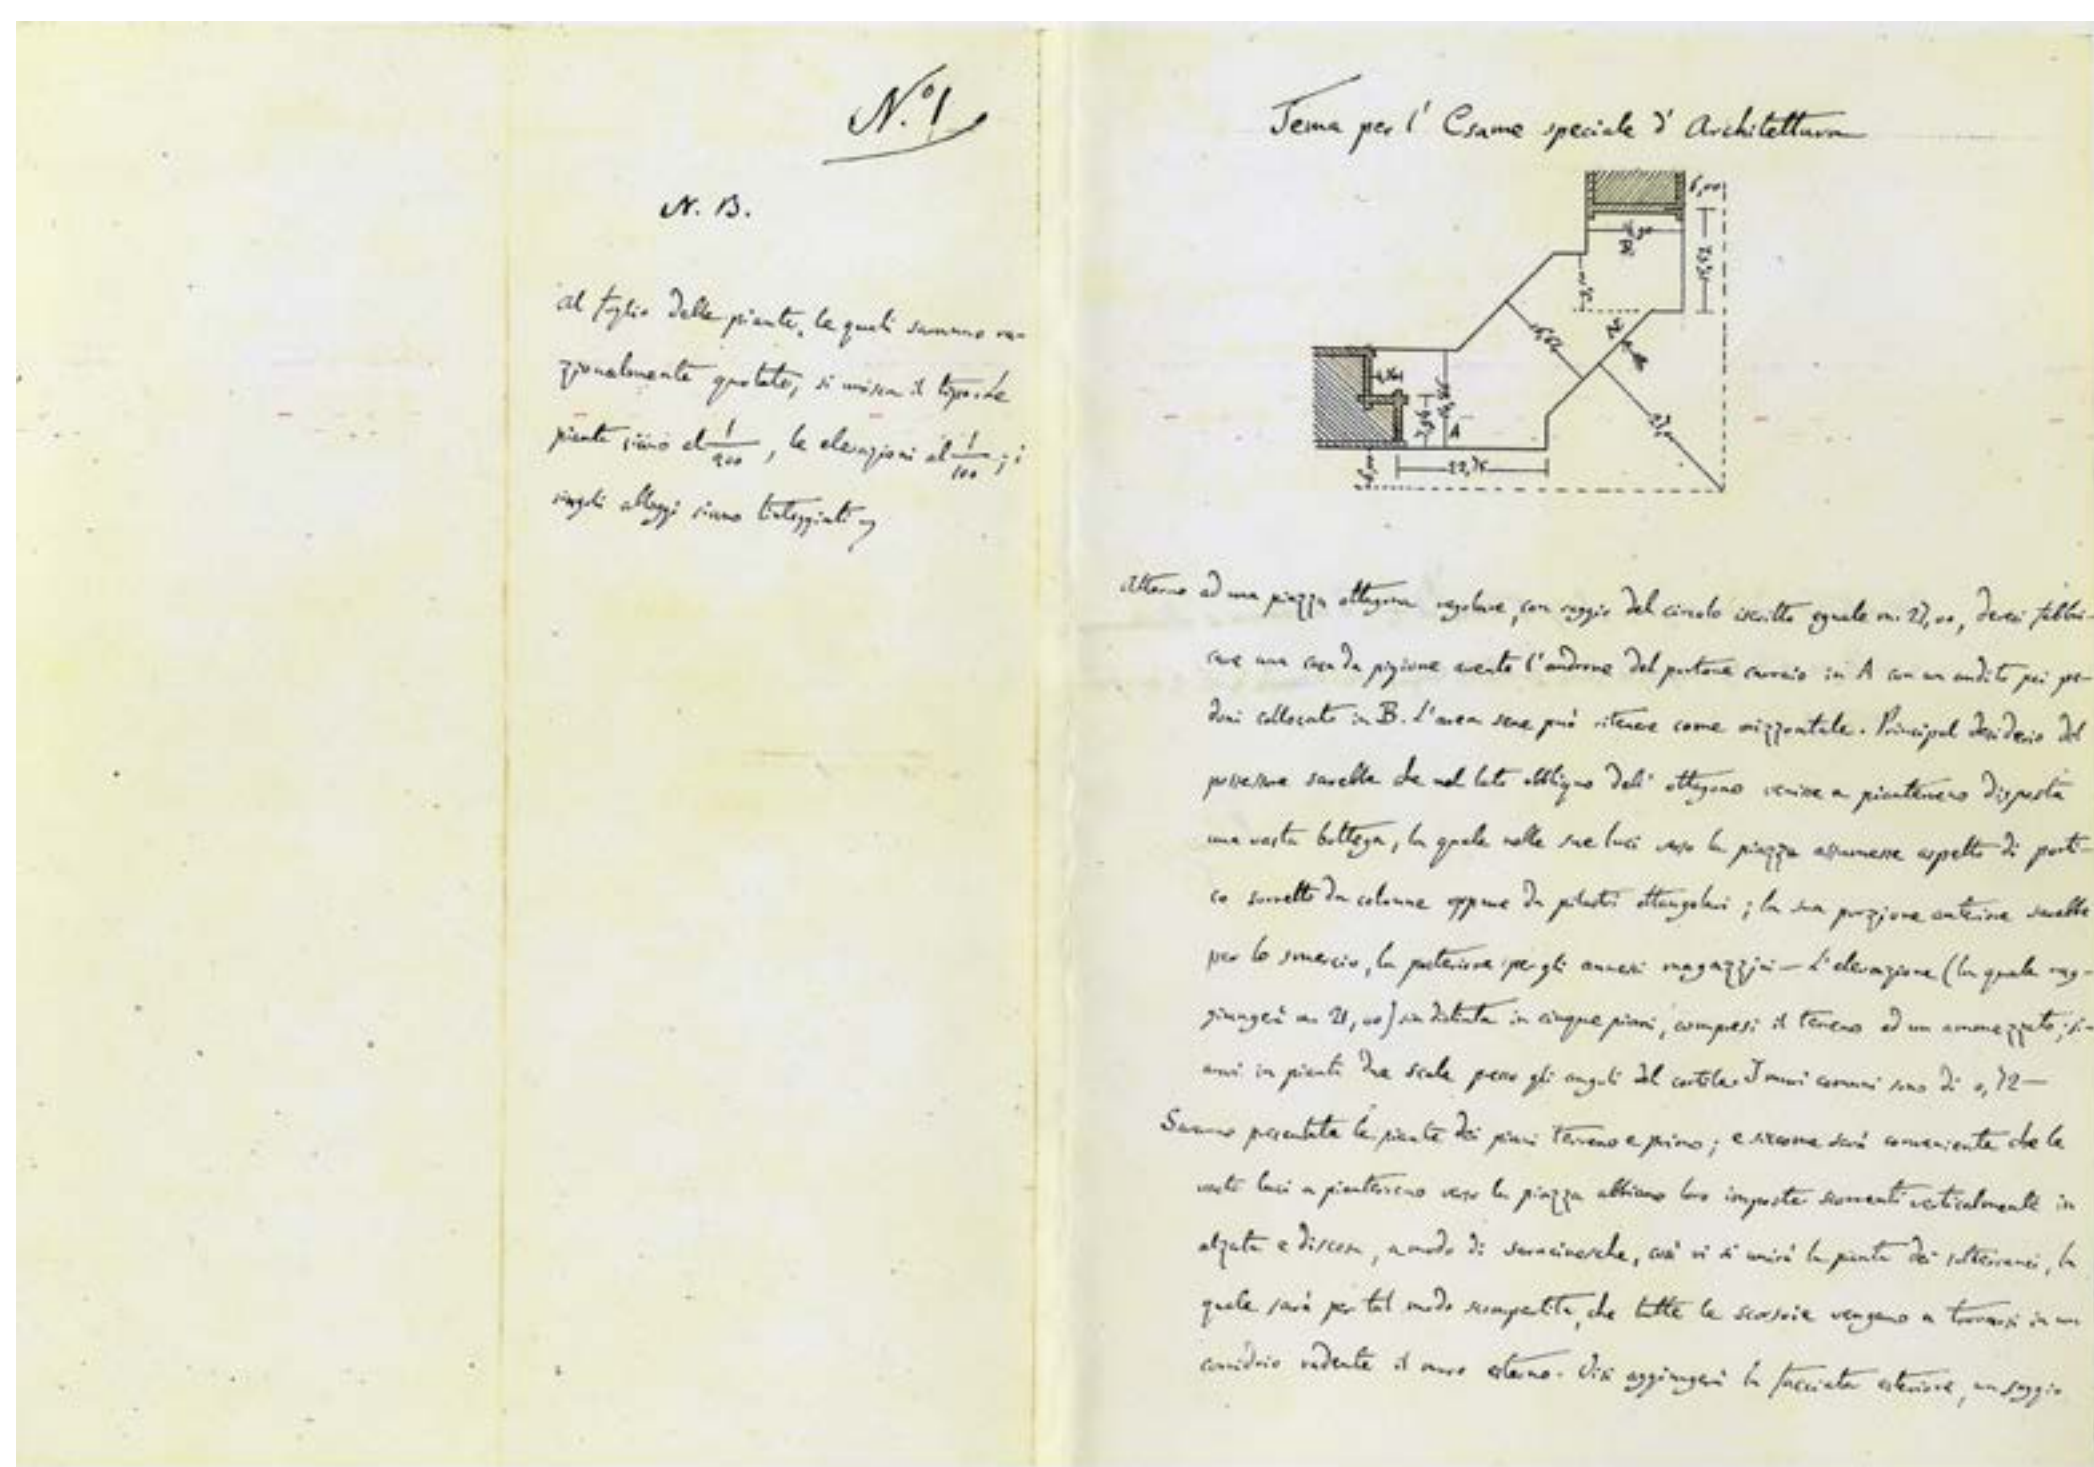 N.º 1
N. B.
Al foglio delle piante, le quali saranno ra-
zionalmente quotate, si unisca il tipo. Le
piante siano al 1/200, le elevazioni al 1/100; i
singoli alloggi siano tinteggiati
Tema per l' Esame speciale d' Architettura
6,00
B
22,75
A
6,00
Attorno ad una piazza ottagona regolare, con raggio del circolo iscritto eguale m. 27,00, devesi fabbri-
care una casa da pigione avente l'androne del portone carraio in A con un andito pei pe-
doni collocato in B. L'area sene può ritenere come orizzontale. Principal desiderio del
possessore sarebbe che nel lato obbliquo dell' ottagono venisse a pianterreno disposta
una vasta bottega, la quale nelle sue luci verso la piazza assumesse aspetto di porti-
co sorretto da colonne oppure da pilastri ottangolari; la sua porzione anteriore sarebbe
per lo smercio, la posteriore per gli annessi magazzini — L'elevazione (la quale rag-
giungerà m. 21,00) sia distinta in cinque piani, compresi il terreno ed un ammezzato; si-
anvi in pianta due scale presso gli angoli del cortile. I muri comuni sono di 0,72 —
Saranno presentate le piante dei piani terreno e primo; e siccome sarà conveniente che le
vaste luci a pianterreno verso la piazza abbiano loro imposte scorrenti verticalmente in
alzata e discesa, a modo di saracinesche, così vi si unirà la pianta dei sotterranei, la
quale sarà per tal modo scompartita, che tutte le scorsoie vengano a trovarsi in un
corridoio radente il muro esterno. Vi si aggiungerà la facciata esteriore, un saggio